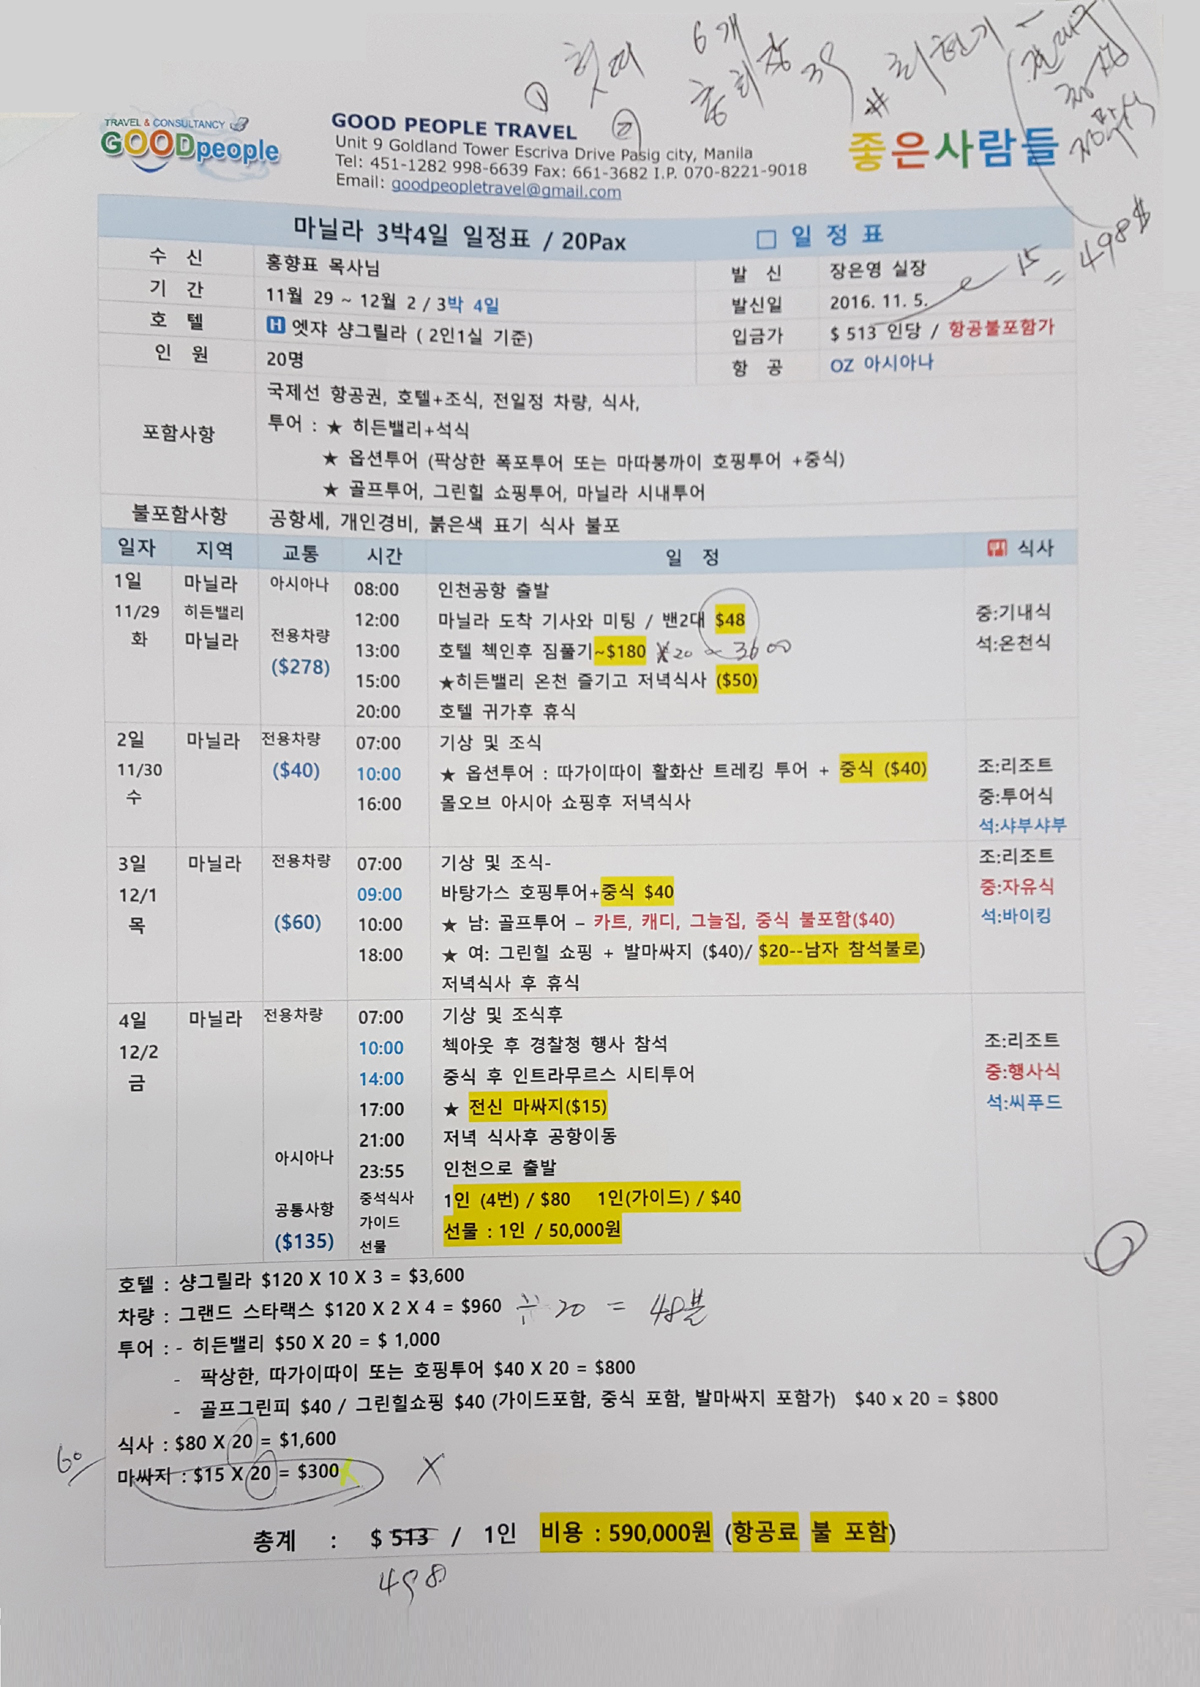 6개
① 헛띠
②
총회장 35
# 최현기 -
TRAVEL & CONSULTANCY
GOODpeople
GOOD PEOPLE TRAVEL
Unit 9 Goldland Tower Escriva Drive Pasig city, Manila
Tel: 451-1282 998-6639 Fax: 661-3682 I.P. 070-8221-9018
Email: goodpeopletravel@gmail.com
좋은사람들
마닐라 3박4일 일정표 / 20Pax
□ 일 정 표
수 신 홍향표 목사님 발 신 장은영 실장
- 15 = 498$
기 간 11월 29 ~ 12월 2 / 3박 4일 발신일 2016. 11. 5.
호 텔 H 엣쟈 샹그릴라 ( 2인1실 기준) 입금가 $ 513 인당 / 항공불포함가
인 원 20명 항 공 OZ 아시아나
포함사항
국제선 항공권, 호텔+조식, 전일정 차량, 식사,
투어 : ★ 히든밸리+석식
★ 옵션투어 (팍상한 폭포투어 또는 마따붕까이 호핑투어 +중식)
★ 골프투어, 그린힐 쇼핑투어, 마닐라 시내투어
불포함사항 공항세, 개인경비, 붉은색 표기 식사 불포
일자 지역 교통 시간 일 정 식사
1일 마닐라 아시아나 08:00 인천공항 출발
11/29 히든밸리 12:00 마닐라 도착 기사와 미팅 / 밴2대 $48 중:기내식
화 마닐라 전용차량 13:00 호텔 첵인후 짐풀기~$180 x20 ~ 3600 석:온천식
($278) 15:00 ★히든밸리 온천 즐기고 저녁식사 ($50)
20:00 호텔 귀가후 휴식
2일 마닐라 전용차량 07:00 기상 및 조식
11/30 ($40) 10:00 ★ 옵션투어 : 따가이따이 활화산 트레킹 투어 + 중식 ($40) 조:리조트
수 16:00 몰오브 아시아 쇼핑후 저녁식사 중:투어식
석:샤부샤부
3일 마닐라 전용차량 07:00 기상 및 조식- 조:리조트
12/1 09:00 바탕가스 호핑투어+중식 $40 중:자유식
목 ($60) 10:00 ★ 남: 골프투어 – 카트, 캐디, 그늘집, 중식 불포함($40) 석:바이킹
18:00 ★ 여: 그린힐 쇼핑 + 발마싸지 ($40)/ $20--남자 참석불로)
저녁식사 후 휴식
4일 마닐라 전용차량 07:00 기상 및 조식후
12/2 10:00 첵아웃 후 경찰청 행사 참석 조:리조트
금 14:00 중식 후 인트라무르스 시티투어 중:행사식
17:00 ★ 전신 마싸지($15) 석:씨푸드
21:00 저녁 식사후 공항이동
아시아나 23:55 인천으로 출발
공통사항 중석식사 1인 (4번) / $80 1인(가이드) / $40
($135) 가이드 선물 : 1인 / 50,000원
선물
호텔 : 샹그릴라 $120 X 10 X 3 = $3,600
차량 : 그랜드 스타랙스 $120 X 2 X 4 = $960 ÷ 20 = 48불
투어 : - 히든밸리 $50 X 20 = $ 1,000
- 팍상한, 따가이따이 또는 호핑투어 $40 X 20 = $800
- 골프그린피 $40 / 그린힐쇼핑 $40 (가이드포함, 중식 포함, 발마싸지 포함가) $40 x 20 = $800
식사 : $80 X 20 = $1,600
60
마싸지 : $15 X 20 = $300 X
총계 : $ 513 / 1인 비용 : 590,000원 (항공료 불 포함)
498